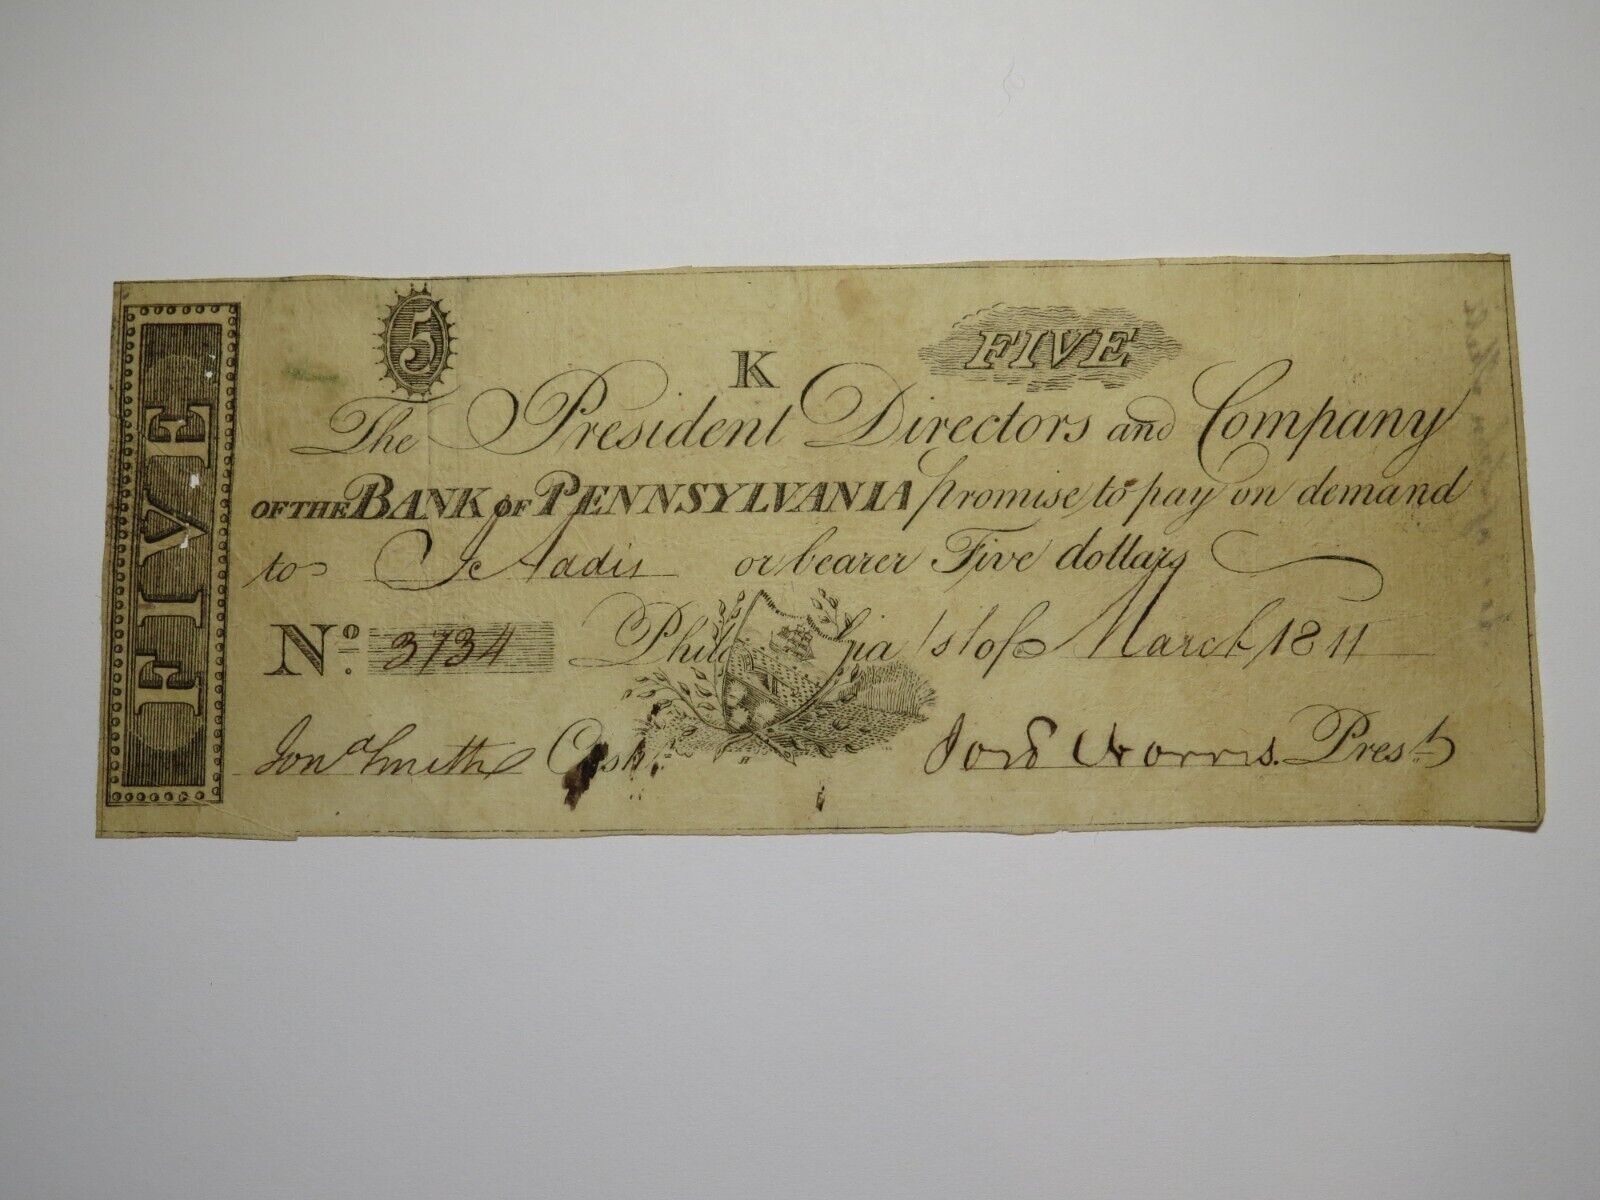 FIVE
5
K
FIVE
The President Directors and Company
OF THE BANK OF PENNSYLVANIA promise to pay on demand
to or bearer Five dollars
No. 3734 Philadelphia 1st of March 1811
Jona Smith Cashr. Norris. Prest.